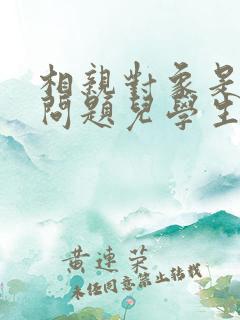 相親對象是
問題兒學生
黃連榮
未经同意禁止转载